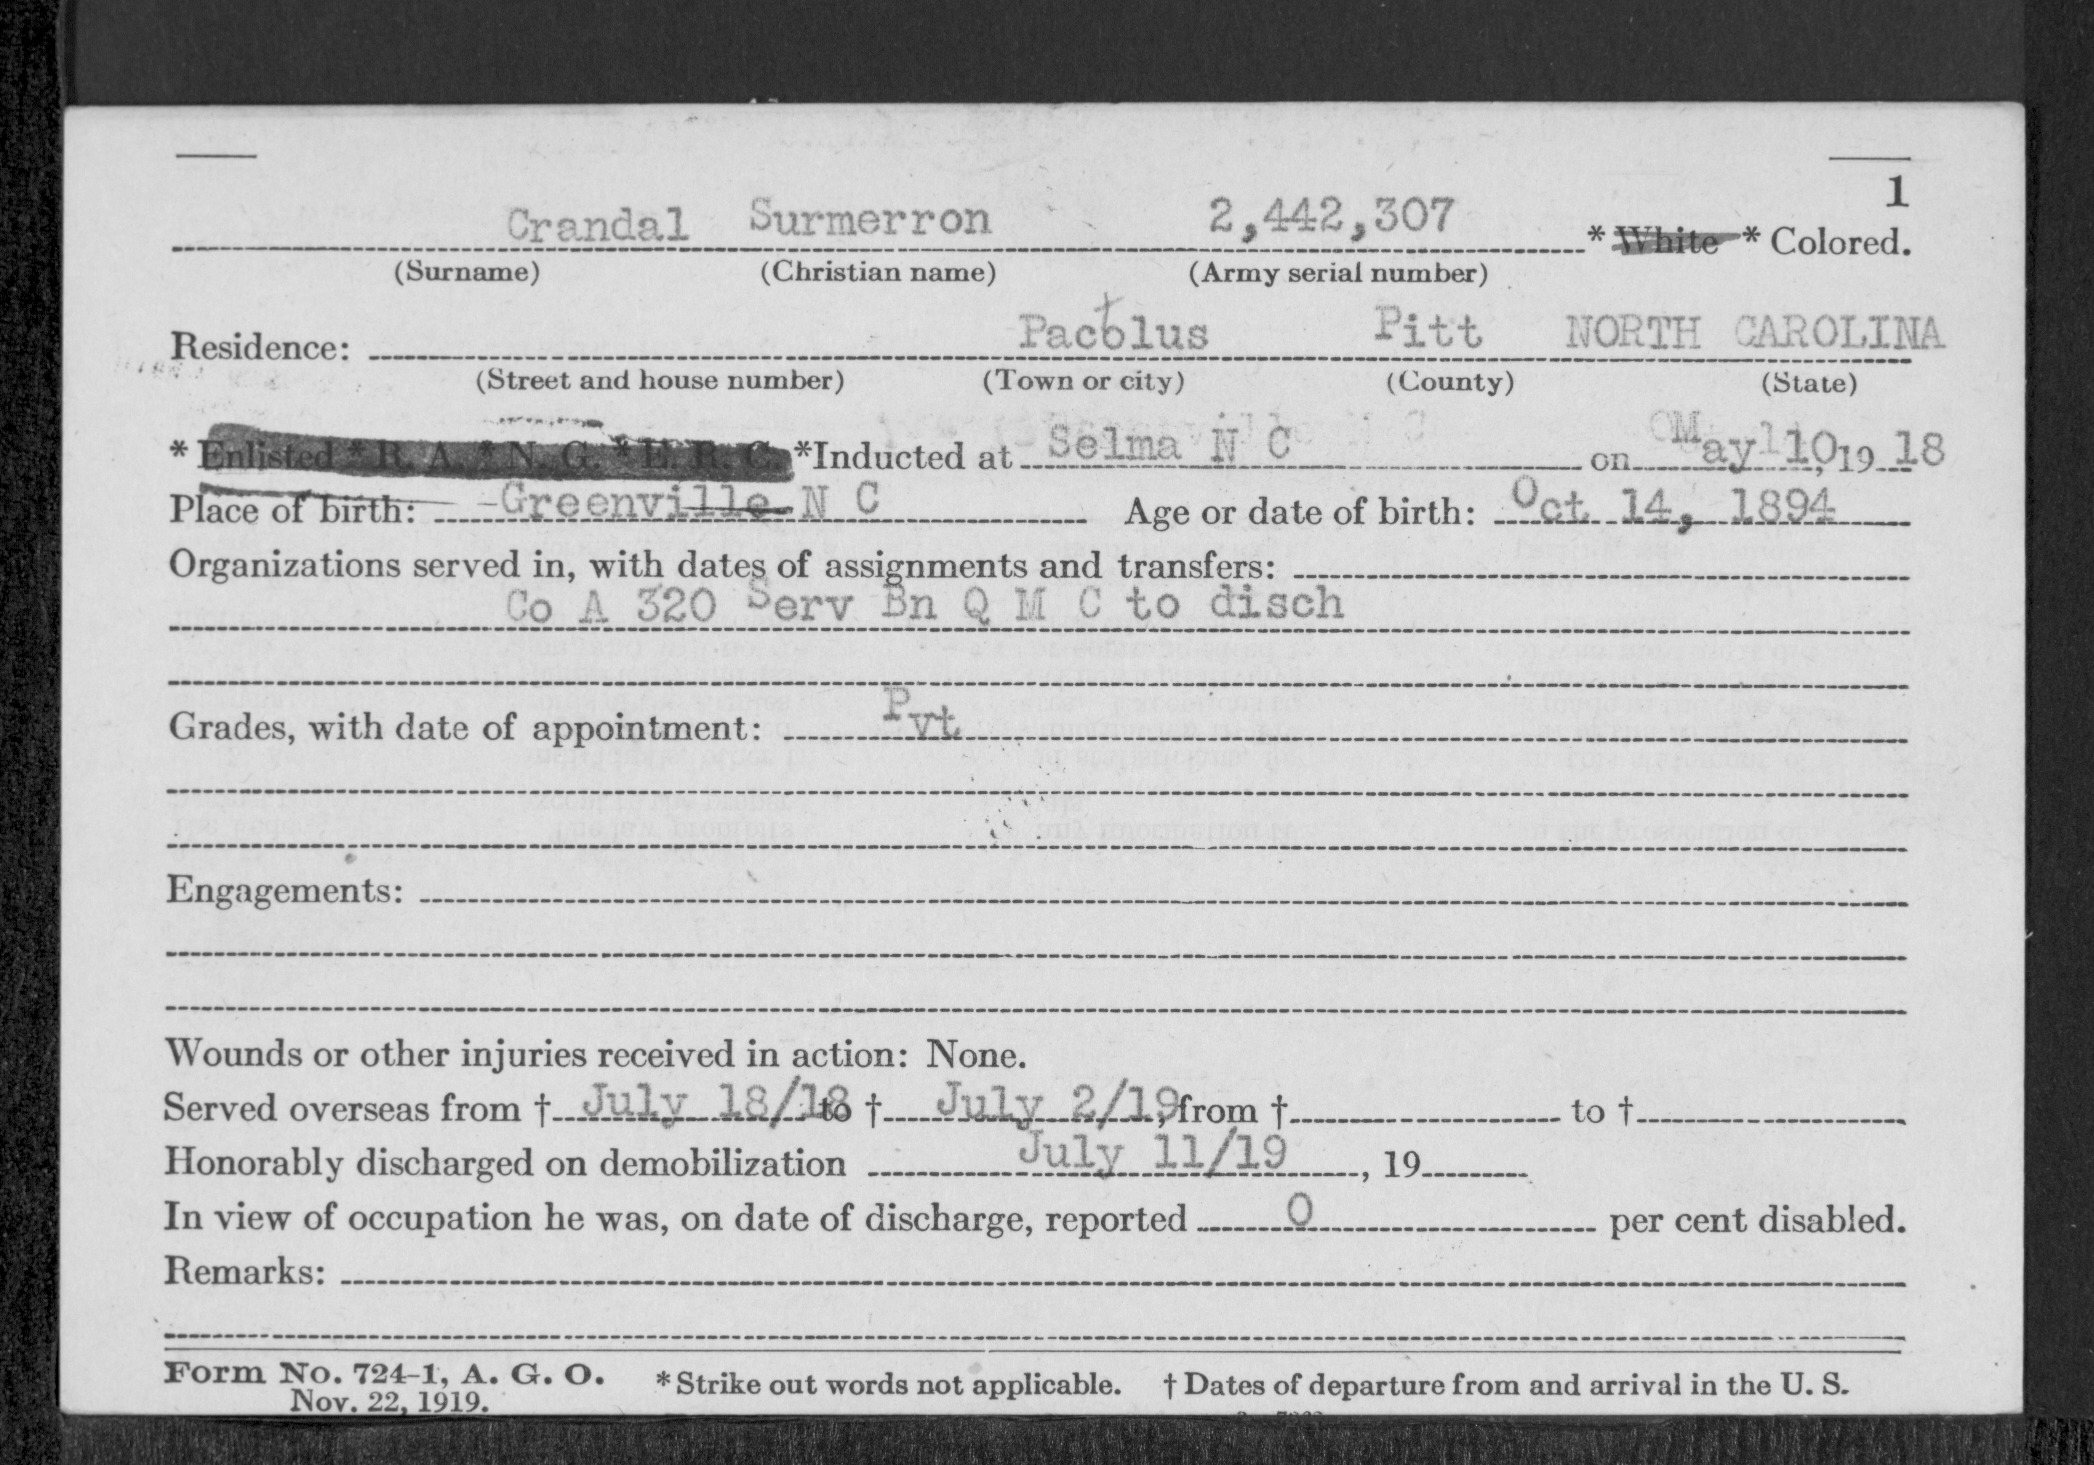 1
Crandal Surmerron 2,442,307 * White * Colored.
(Surname) (Christian name) (Army serial number)
Residence: Pactolus Pitt NORTH CAROLINA
(Street and house number) (Town or city) (County) (State)
* Enlisted * R. A. * N. G. * E. R. C. *Inducted at Selma N C on May 10, 19 18
Place of birth: Greenville N C Age or date of birth: Oct 14, 1894
Organizations served in, with dates of assignments and transfers:
Co A 320 Serv Bn Q M C to disch
Grades, with date of appointment: Pvt
Engagements:
Wounds or other injuries received in action: None.
Served overseas from † July 18/18 to † July 2/19, from † to †
Honorably discharged on demobilization July 11/19, 19
In view of occupation he was, on date of discharge, reported 0 per cent disabled.
Remarks:
Form No. 724-1, A. G. O. * Strike out words not applicable. † Dates of departure from and arrival in the U. S.
Nov. 22, 1919.